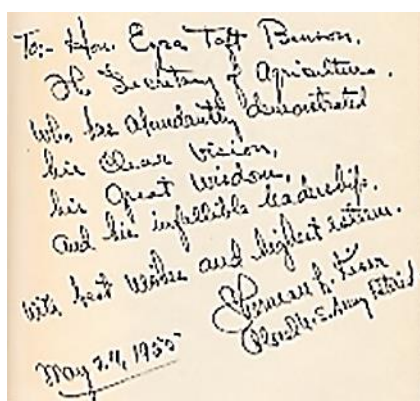 To:- Hon. Ezra Taft Benson,
The Secretary of Agriculture.
who has abundantly demonstrated
his clear vision,
his Great Wisdom,
and his infallible leadership.
with best wishes and highest esteem.
Sherman L. Kiser
U.S. Army
May 24, 1955